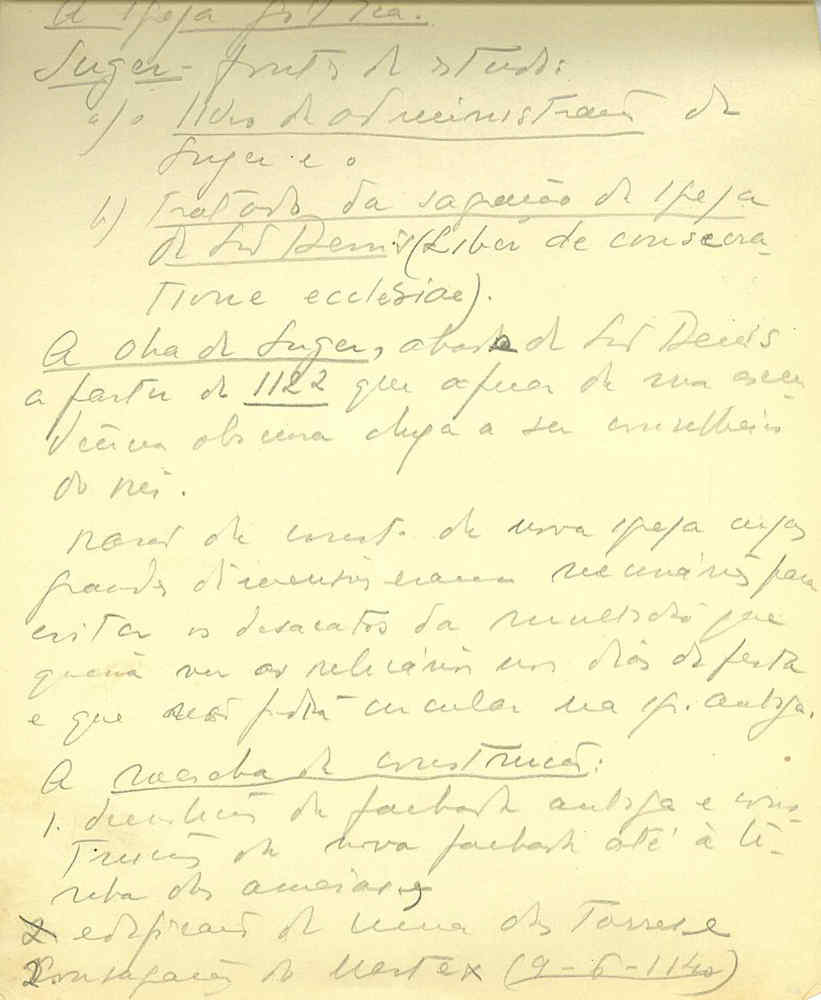 A igreja gótica.
Suger - fontes de estudo:
a) o livro de administração de
Suger e o
b) Tratado da sagração da igreja
de São Denis (Liber de consecra-
tione ecclesiae).
A obra de Suger, abade de São Denis
a partir de 1122 que apesar de sua ascen
dência obscura chega a ser conselheiro
do rei.
razões da const. da nova igreja cujas
grandes dimensões eram necessárias para
evitar os desacatos da multidão que
queria ver os relicários nos dias de festa
e que não podia circular na ig. antiga.
A marcha da construção:
1. demolição da fachada antiga e cons-
trução da nova fachada até à li-
nha das ameias,
2 edificação de uma das torres e
2 consagração do nartex (9-6-1140)